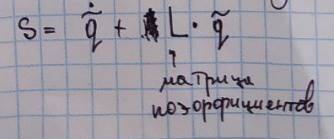 S = \dot{\tilde{q}} + L · \tilde{q}
↑
матрица
коэффициентов